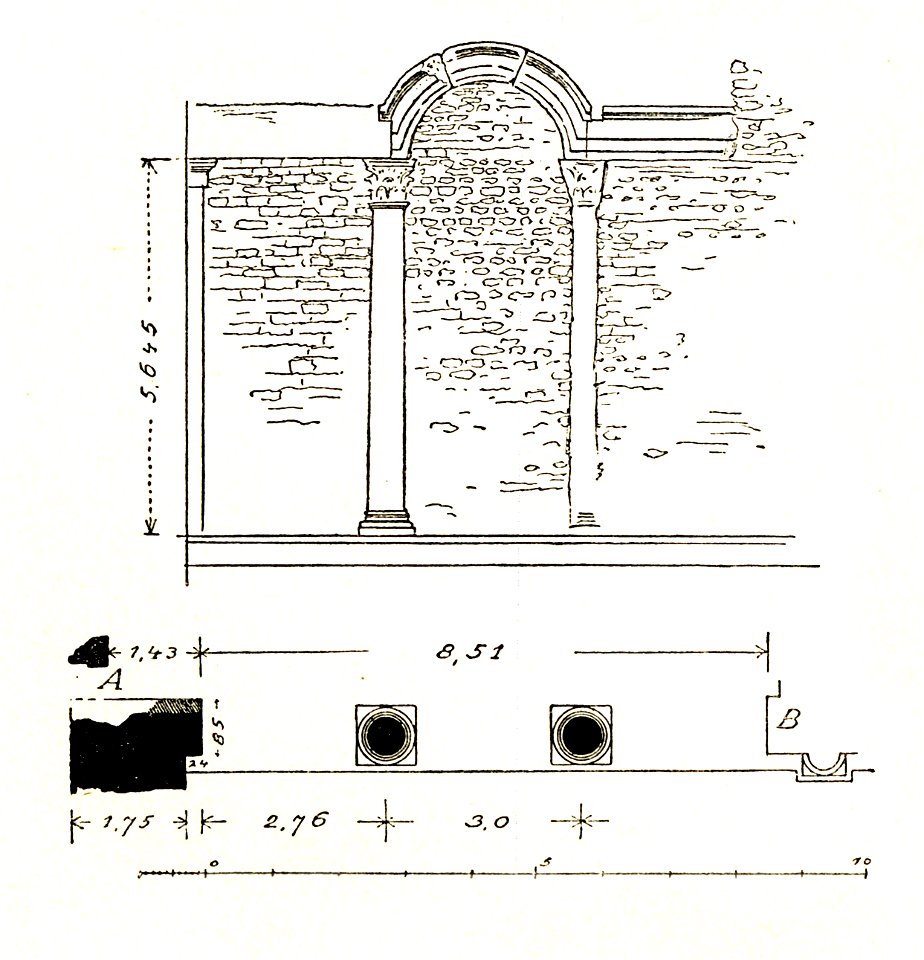 5.645
1,43
8,51
A
85
24
B
1,75
2,76
3,0
0
5
10